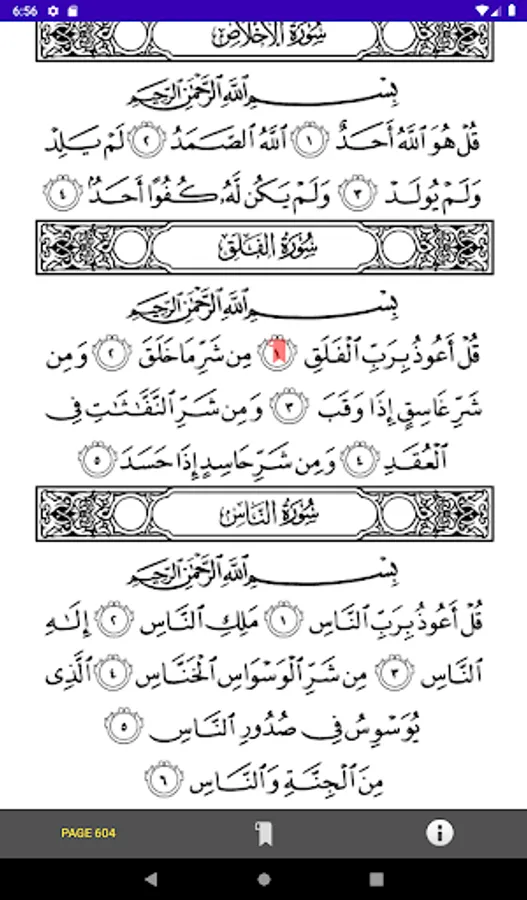 6:56
سُورَةُ الإِخْلَاصِ
بِسْمِ ٱللَّهِ ٱلرَّحْمَٰنِ ٱلرَّحِيمِ
قُلْ هُوَ ٱللَّهُ أَحَدٌ ١ ٱللَّهُ ٱلصَّمَدُ ٢ لَمْ يَلِدْ
وَلَمْ يُولَدْ ٣ وَلَمْ يَكُن لَّهُۥ كُفُوًا أَحَدٌۢ ٤
سُورَةُ الفَلَقِ
بِسْمِ ٱللَّهِ ٱلرَّحْمَٰنِ ٱلرَّحِيمِ
قُلْ أَعُوذُ بِرَبِّ ٱلْفَلَقِ ١ مِن شَرِّ مَا خَلَقَ ٢ وَمِن
شَرِّ غَاسِقٍ إِذَا وَقَبَ ٣ وَمِن شَرِّ ٱلنَّفَّٰثَٰتِ فِى
ٱلْعُقَدِ ٤ وَمِن شَرِّ حَاسِدٍ إِذَا حَسَدَ ٥
سُورَةُ النَّاسِ
بِسْمِ ٱللَّهِ ٱلرَّحْمَٰنِ ٱلرَّحِيمِ
قُلْ أَعُوذُ بِرَبِّ ٱلنَّاسِ ١ مَلِكِ ٱلنَّاسِ ٢ إِلَٰهِ
ٱلنَّاسِ ٣ مِن شَرِّ ٱلْوَسْوَاسِ ٱلْخَنَّاسِ ٤ ٱلَّذِى
يُوَسْوِسُ فِى صُدُورِ ٱلنَّاسِ ٥
مِنَ ٱلْجِنَّةِ وَٱلنَّاسِ ٦
PAGE 604